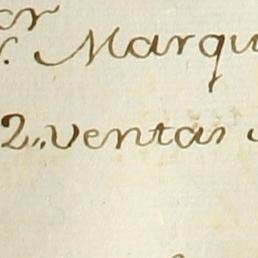 Marqu
2,, ventas